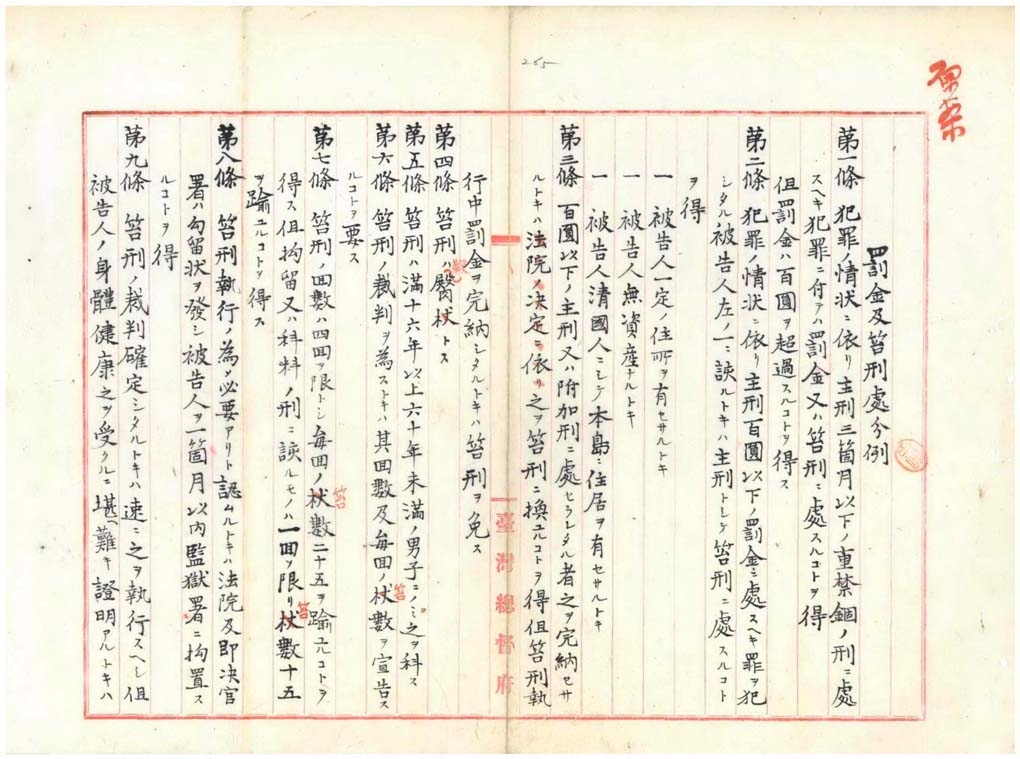 265
原案
罰金及笞刑處分例
第一條 犯罪ノ情状ニ依リ主刑三箇月以下ノ重禁錮ノ刑ニ處
スヘキ犯罪ニ付テハ罰金又ハ笞刑ニ處スルコトヲ得
但罰金ハ百圓ヲ超過スルコトヲ得ス
第二條 犯罪ノ情状ニ依リ主刑百圓以下ノ罰金ニ處スヘキ罪ヲ犯
シタル被告人左ノ一ニ該ルトキハ主刑トシテ笞刑ニ處スルコト
ヲ得
一 被告人一定ノ住所ヲ有セサルトキ
一 被告人無資産ナルトキ
一 被告人清國人ニシテ本島ニ住居ヲ有セサルトキ
第三條 百圓以下ノ主刑又ハ附加刑ニ處セラレタル者之ヲ完納セサ
ルトキハ法院ノ決定ニ依リ之ヲ笞刑ニ換ユルコトヲ得但笞刑執
臺灣總督府
行中罰金ヲ完納シタルトキハ笞刑ヲ免ス
第四條 笞刑ハ臀杖トス
第五條 笞刑ハ満十六年以上六十年未満ノ男子ニノミ之ヲ科ス
第六條 笞刑ノ裁判ヲ為ストキハ其回數及毎回ノ杖數ヲ宣告ス
笞
ルコトヲ要ス
第七條 笞刑ノ回數ハ四回ヲ限トシ毎回ノ杖數二十五ヲ踰ユルコトヲ
笞
得ス但拘留又ハ科料ノ刑ニ該ルモノハ一回ヲ限リ杖數十五
笞
ヲ踰ユルコトヲ得ス
第八條 笞刑執行ノ為メ必要アリト認ムルトキハ法院及即決官
署ハ勾留状ヲ發シ被告人ヲ一箇月以内監獄署ニ拘置ス
ルコトヲ得
第九條 笞刑ノ裁判確定シタルトキハ速ニ之ヲ執行スヘシ但
被告人ノ身體健康之ヲ受クルニ堪ヘ難キ證明アルトキハ